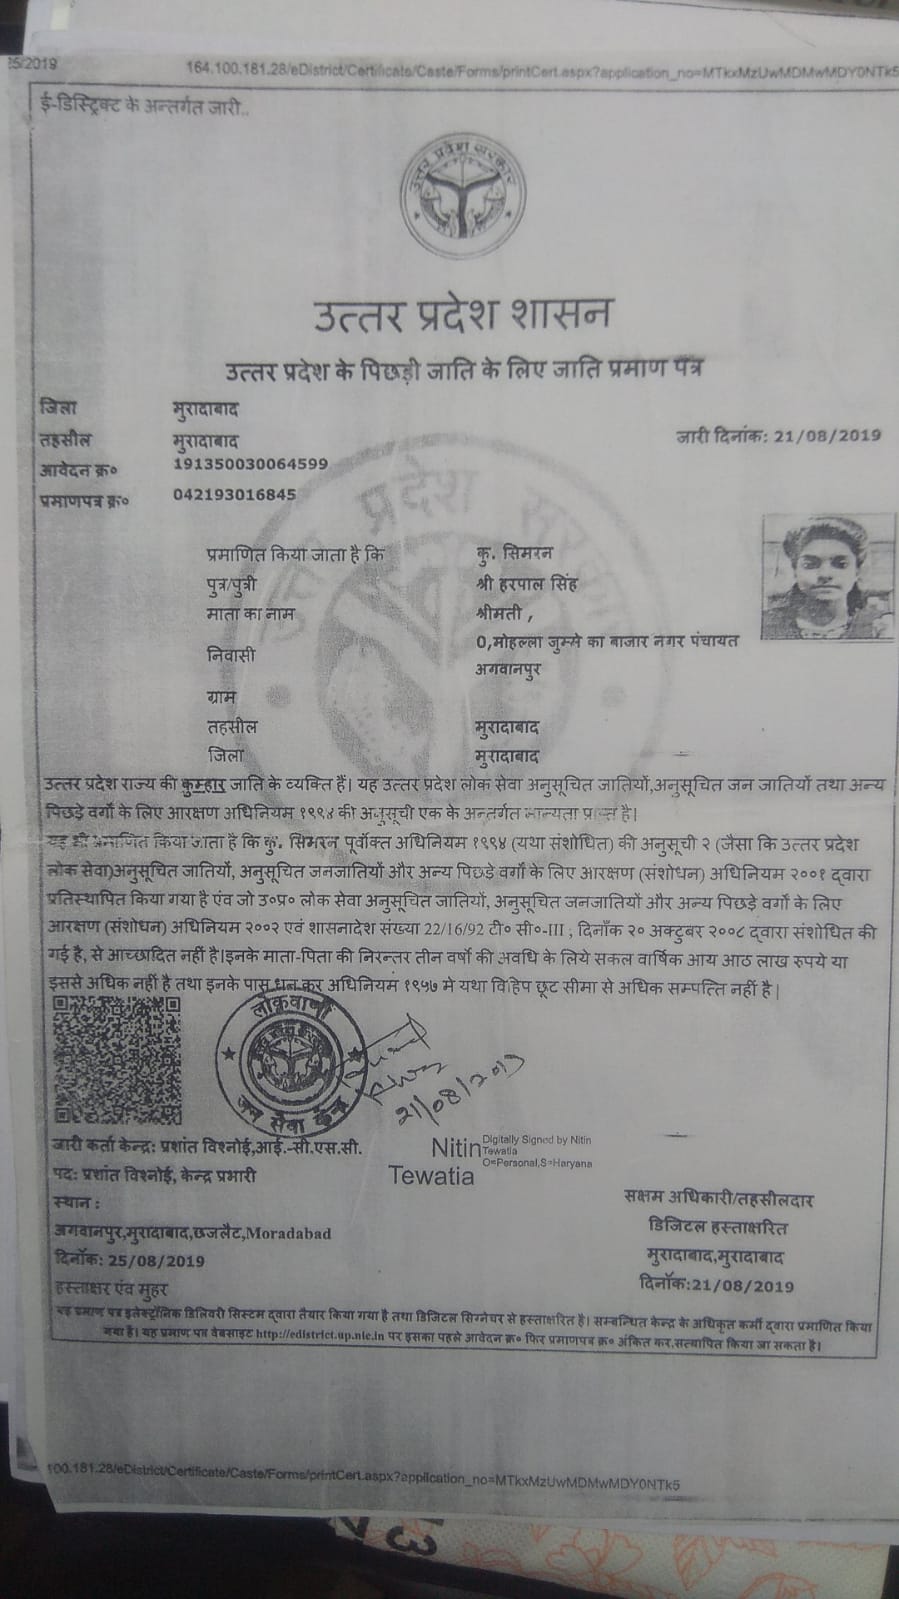 5/2019
164.100.181.28/eDistrict/Certificate/Caste/Forms/printCert.aspx?application_no=MTkxMzUwMDMwMDY0NTk5
ई-डिस्ट्रिक्ट के अन्तर्गत जारी..
उत्तर प्रदेश सरकार
उत्तर प्रदेश शासन
उत्तर प्रदेश के पिछड़ी जाति के लिए जाति प्रमाण पत्र
जिला मुरादाबाद
तहसील मुरादाबाद
जारी दिनांक: 21/08/2019
आवेदन क्र० 191350030064599
प्रमाणपत्र क्र० 042193016845
प्रमाणित किया जाता है कि कु. सिमरन
पुत्र/पुत्री श्री हरपाल सिंह
माता का नाम श्रीमती ,
निवासी 0,मोहल्ला जुम्मे का बाजार नगर पंचायत
अगवानपुर
ग्राम
तहसील मुरादाबाद
जिला मुरादाबाद
उत्तर प्रदेश राज्य की कुम्हार जाति के व्यक्ति हैं। यह उत्तर प्रदेश लोक सेवा अनुसूचित जातियों,अनुसूचित जन जातियों तथा अन्य
पिछड़े वर्गों के लिए आरक्षण अधिनियम १९९४ की अनुसूची एक के अन्तर्गत मान्यता प्राप्त है।
यह भी प्रमाणित किया जाता है कि कु. सिमरन पूर्वोक्त अधिनियम १९९४ (यथा संशोधित) की अनुसूची २ (जैसा कि उत्तर प्रदेश
लोक सेवा)अनुसूचित जातियों, अनुसूचित जनजातियों और अन्य पिछड़े वर्गों के लिए आरक्षण (संशोधन) अधिनियम २००१ द्वारा
प्रतिस्थापित किया गया है एंव जो उ०प्र० लोक सेवा अनुसूचित जातियों, अनुसूचित जनजातियों और अन्य पिछड़े वर्गों के लिए
आरक्षण (संशोधन) अधिनियम २००२ एवं शासनादेश संख्या 22/16/92 टी० सी०-III ; दिनाँक २० अक्टुबर २००८ द्वारा संशोधित की
गई है, से आच्छादित नहीं है।इनके माता-पिता की निरन्तर तीन वर्षों की अवधि के लिये सकल वार्षिक आय आठ लाख रुपये या
इससे अधिक नहीं है तथा इनके पास धन कर अधिनियम १९५७ मे यथा विहिप छूट सीमा से अधिक सम्पत्ति नहीं है |
लोकवाणी
जन सेवा केन्द्र
21/08/2019
जारी कर्ता केन्द्र: प्रशांत विश्नोई,आई.-सी.एस.सी.
Nitin Tewatia
Digitally Signed by Nitin
Tewatia
O=Personal,S=Haryana
पद: प्रशांत विश्नोई, केन्द्र प्रभारी
स्थान :
अगवानपुर,मुरादाबाद,छजलैट,Moradabad
दिनाँक: 25/08/2019
हस्ताक्षर एंव मुहर
सक्षम अधिकारी/तहसीलदार
डिजिटल हस्ताक्षरित
मुरादाबाद,मुरादाबाद
दिनाँक:21/08/2019
यह प्रमाण पत्र इलेक्ट्रॉनिक डिलिवरी सिस्टम द्वारा तैयार किया गया है तथा डिजिटल सिग्नेचर से हस्ताक्षरित है। सम्बन्धित केन्द्र के अधिकृत कर्मी द्वारा प्रमाणित किया
गया है। यह प्रमाण पत्र वेबसाइट http://edistrict.up.nic.in पर इसका पहले आवेदन क्र० फिर प्रमाणपत्र क्र० अंकित कर,सत्यापित किया जा सकता है।
100.181.28/eDistrict/Certificate/Caste/Forms/printCert.aspx?application_no=MTkxMzUwMDMwMDY0NTk5